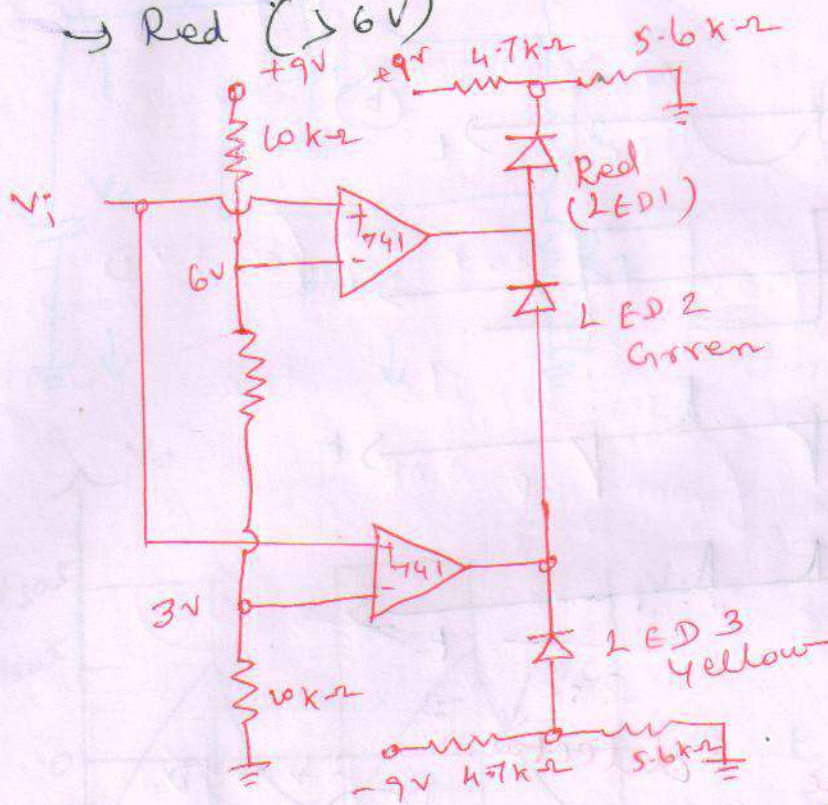 → Red (>6V)
+9V
+9V 4.7kΩ 5.6kΩ
10kΩ
Vi
+
741
-
Red
(LED1)
6V
LED2
Green
+
741
-
3V
LED3
Yellow
10kΩ
-9V 4.7kΩ 5.6kΩ